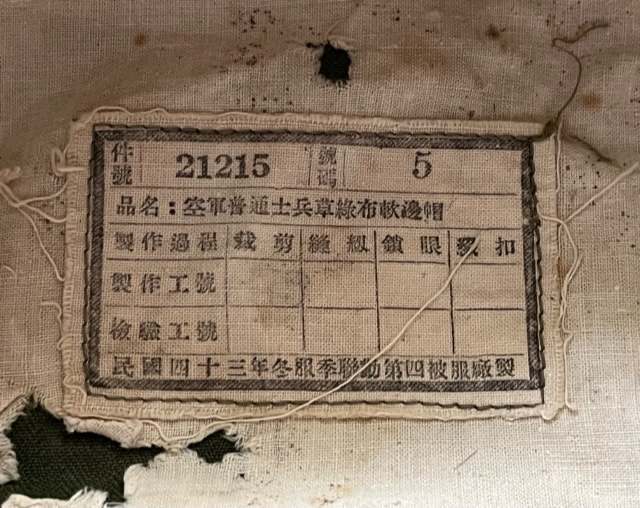 件號 21215 號碼 5
品名：空軍普通士兵草綠布軟邊帽
製作過程 裁剪 縫紉 鎖眼 釘扣
製作工號
檢驗工號
民國四十三年冬服季聯勤第四被服廠製